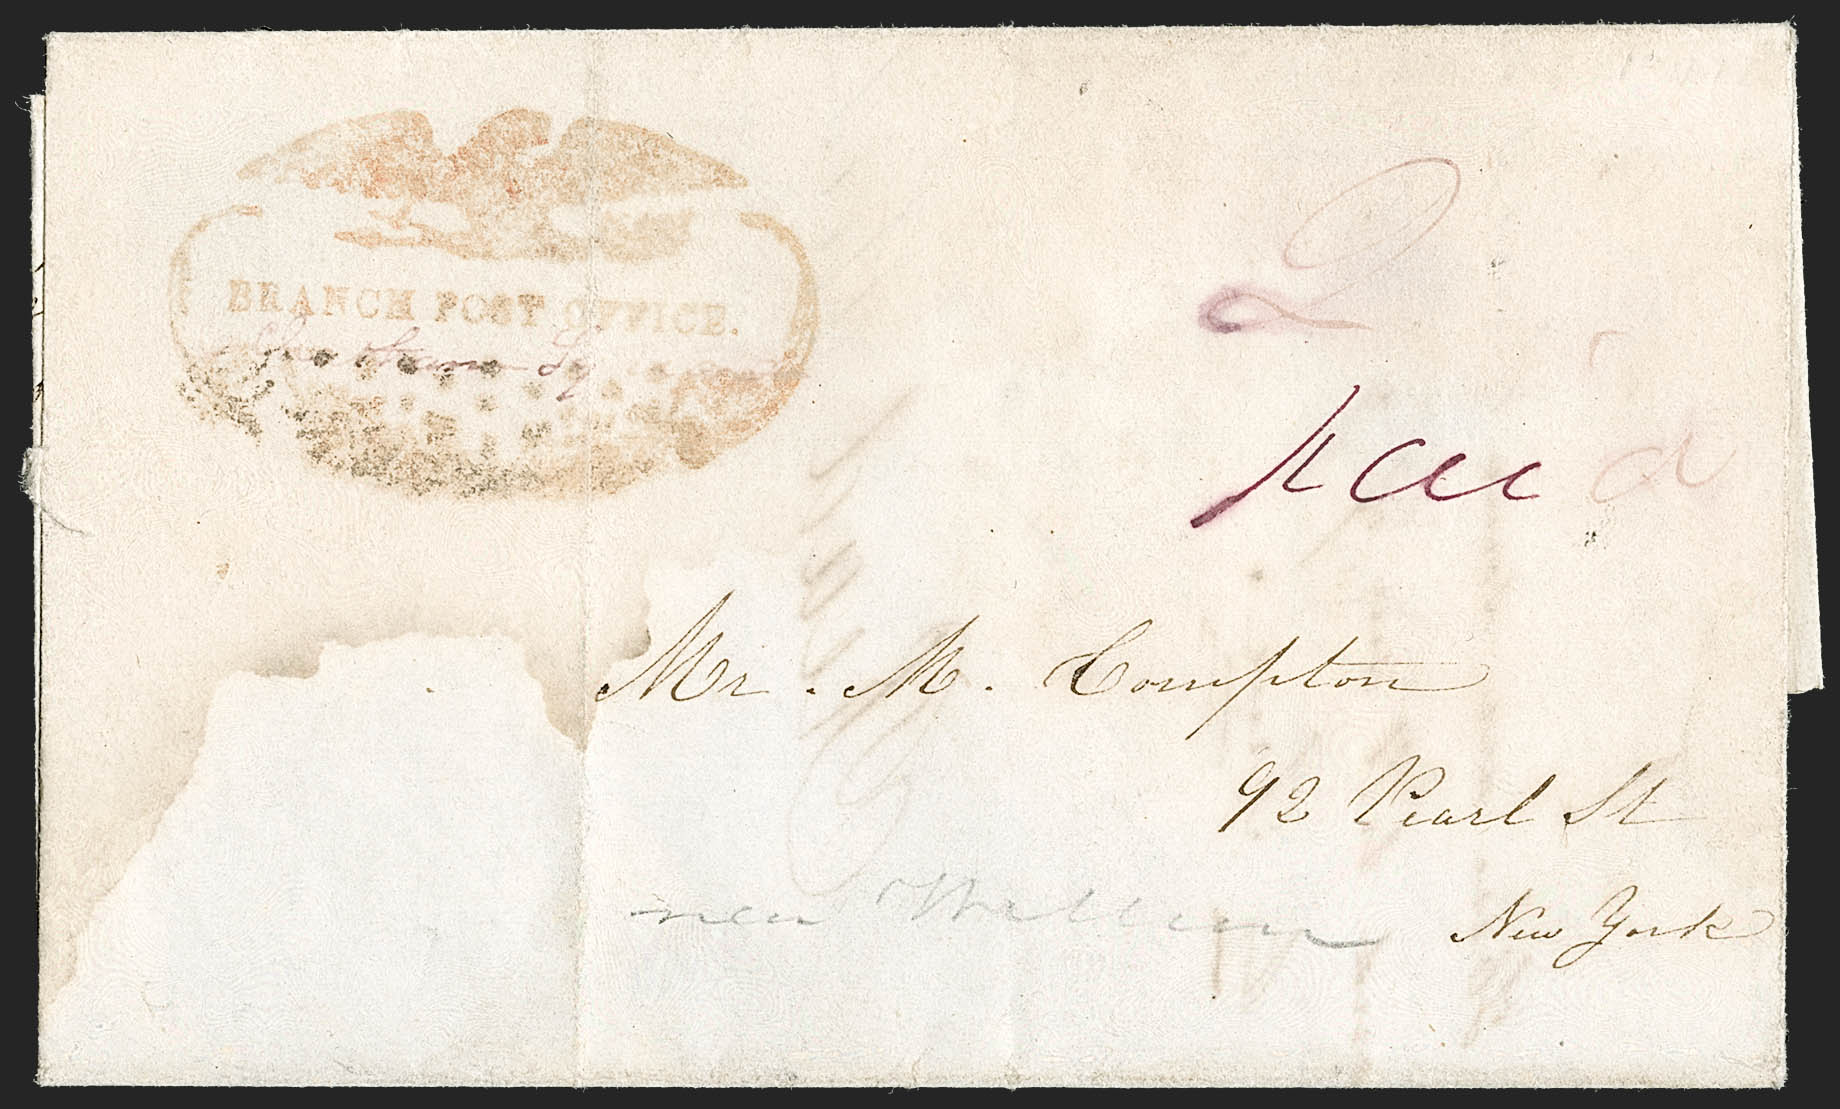 BRANCH POST OFFICE.
2
Paid
Mr. M. Compton
92 Pearl St
near
New York